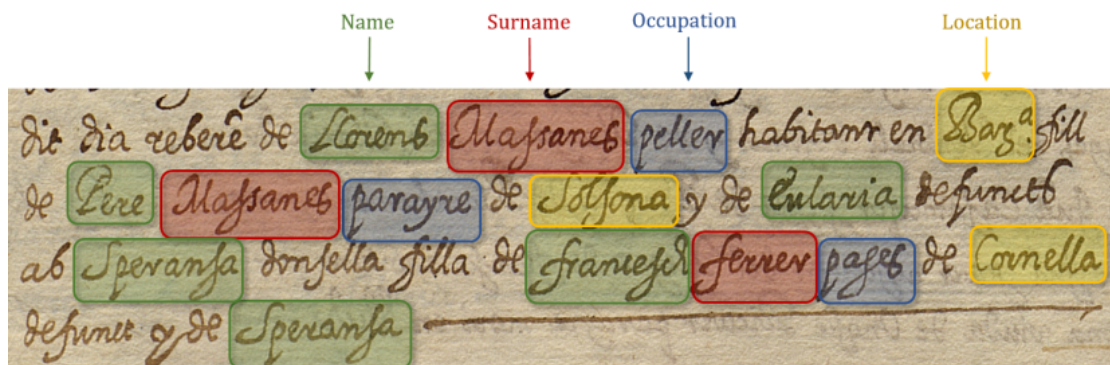 Name Surname Occupation Location
dit dia rebere de Llorens Massanes peller habitant en Barᵃ fill
de Pere Massanes parayre de Solsona y de Eularia defuncts
ab Speransa donsella filla de francesch ferrer pages de Cornella
defunct y de Speransa